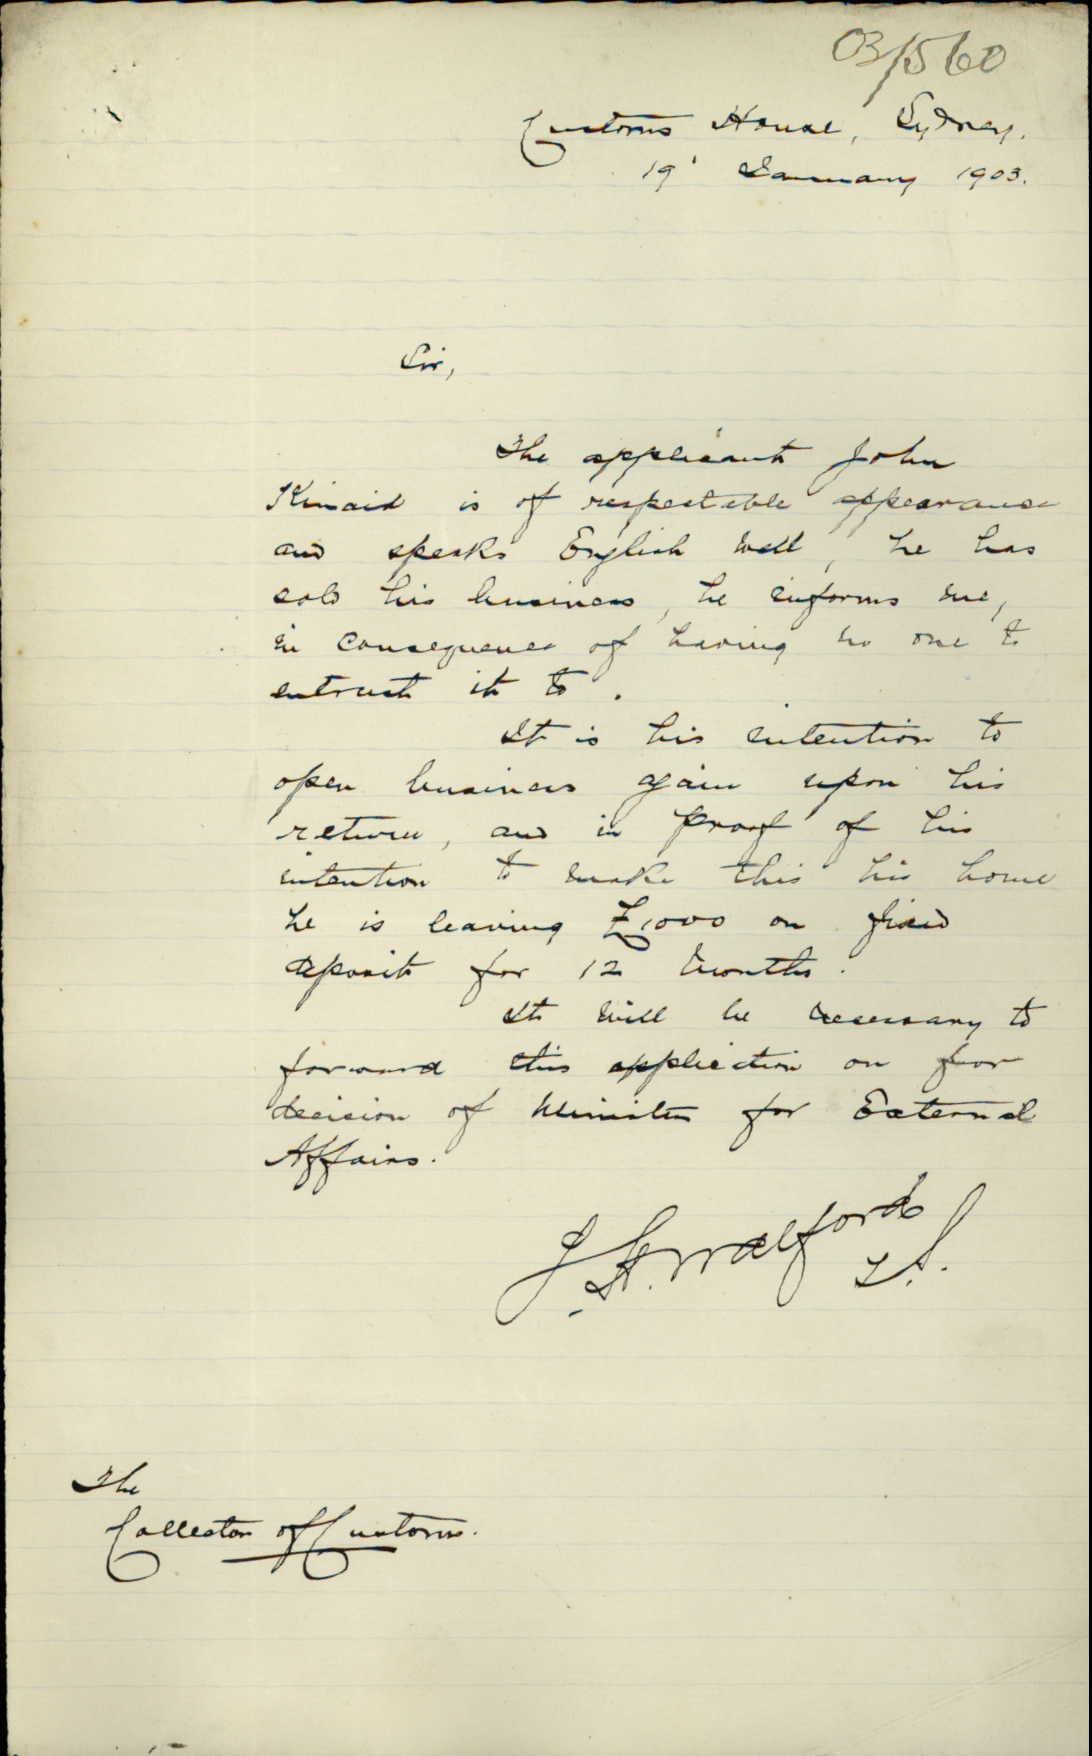 03/560
Customs House, Sydney.
19' January 1903.
Sir,
The applicant John
Kinaid is of respectable appearance
and speaks English well, he has
sold his business, he informs me,
in consequence of having no one to
entrust it to.
It is his intention to
open business again upon his
return, and in proof of his
intention to make this his home
he is leaving £1000 on fixed
deposit for 12 months.
It will be necessary to
forward this application on for
decision of Minister for External
Affairs.
Walford
The
Collector of Customs.